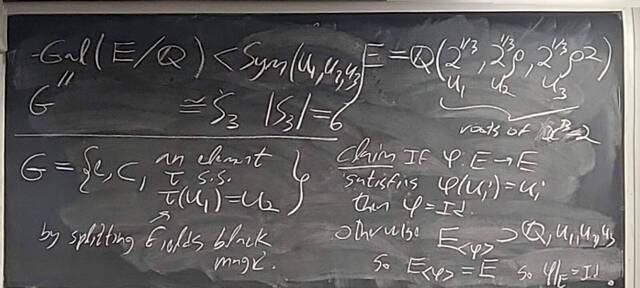 Gal(E/Q) < Sym(u₁,u₂,u₃)
G ≅ S₃ |S₃|=6
E = Q(2^{1/3}, 2^{1/3}ρ, 2^{1/3}ρ2)
u₁ u₂ u₃
roots of x³-2
G = {e, c, an element
τ s.t.
τ(u₁)=u₂}
by splitting fields black
magic.
Claim If φ: E → E
satisfies φ(uᵢ)=uᵢ
then φ=Id.
otherwise E_{<φ>} ⊃ Q, u₁, u₂, u₃
so E_{<φ>} = E so φ|_E = Id.